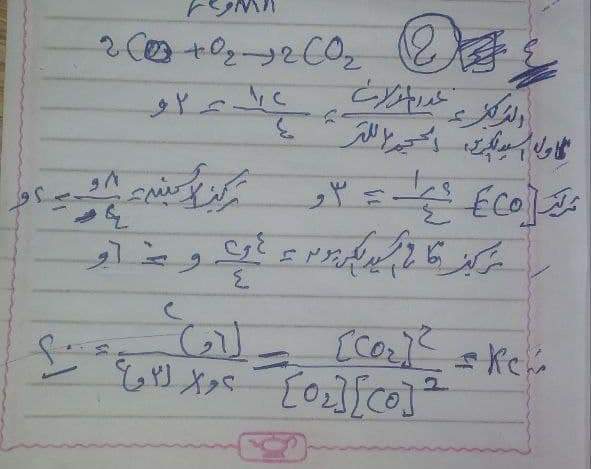 2CO + O₂ → 2CO₂ ٤
التركيز = عدد المولات / الحجم باللتر = ١,٢ / ٤ = ٣و
اول اكسيد الكربون
تركيز [CO] = ١,٢ / ٤ = ٣و تركيز الاكسجين = ٨و / ٤ = ٢و
تركيز ثاني اكسيد الكربون = ٢,٤ / ٤ = ٦و
Kc = [CO₂]² / [O₂][CO]² = (٦و)² / ٢و × (٣و)² = ٢٠